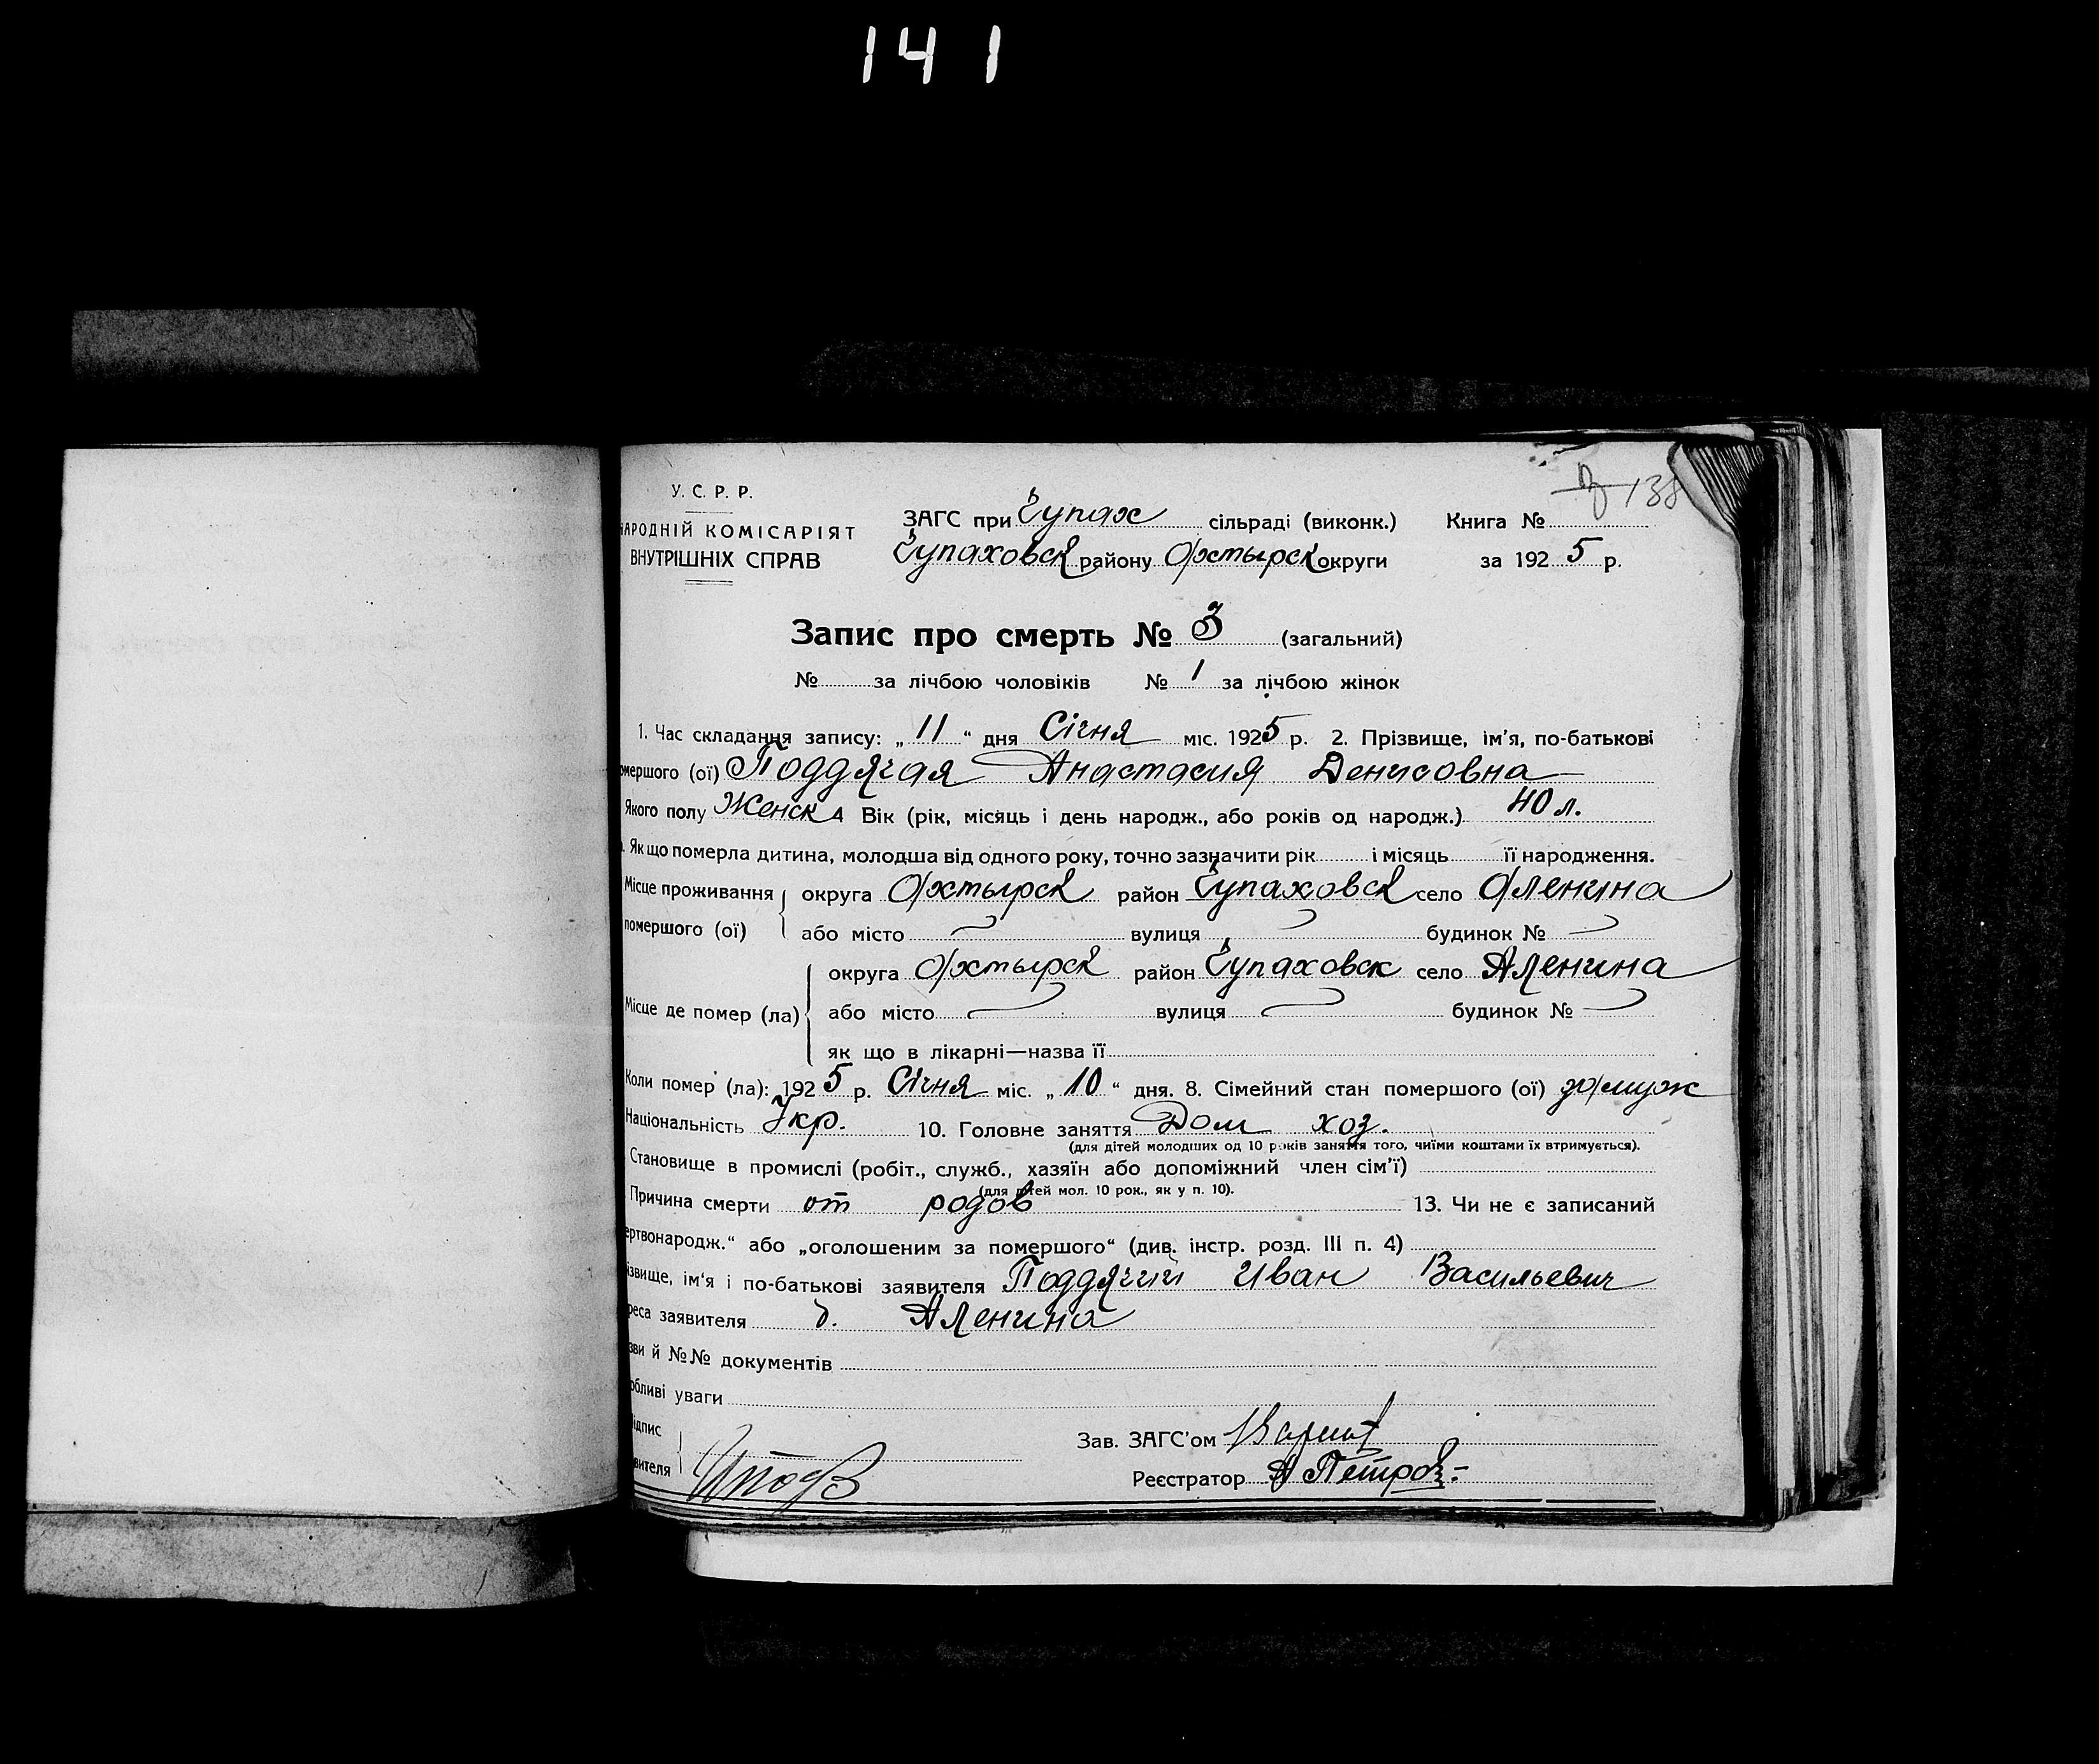 141
З 138
У. С. Р. Р.
НАРОДНІЙ КОМІСАРІЯТ
ВНУТРІШНІХ СПРАВ
ЗАГС при Чупах сільраді (виконк.) Книга №
Чупаховск району Охтырск округи за 1925 р.
Запис про смерть № 3 (загальний)
№ за лічбою чоловіків № 1 за лічбою жінок
1. Час складання запису: „11“ дня Січня міс. 1925 р. 2. Прізвище, ім'я, по-батькові
омершого (ої) Поддячая Анастасия Денисовна
Якого полу Женск 4 Вік (рік, місяць і день народж., або років од народж.) 40 л.
Як що померла дитина, молодша від одного року, точно зазначити рік і місяць її народження.
Місце проживання округа Охтырск район Чупаховск село Оленина
помершого (ої) або місто вулиця будинок №
округа Охтырск район Чупаховск село Аленина
Місце де помер (ла) або місто вулиця будинок №
як що в лікарні—назва її
Коли помер (ла): 1925 р. Січня міс. „10“ дня. 8. Сімейний стан помершого (ої) замуж
Національність Укр. 10. Головне заняття Дом хоз.
(для дітей молодших од 10 років заняття того, чиїми коштами їх втримується).
Становище в промислі (робіт., служб., хазяїн або допоміжний член сім'ї)
(для дітей мол. 10 рок., як у п. 10).
Причина смерти от родов 13. Чи не є записаний
ертвонародж.“ або „оголошеним за помершого“ (див. інстр. розд. III п. 4)
ізвище, ім'я і по-батькові заявителя Поддячий Иван Васильевич
реса заявителя д. Аленина
зви й №№ документів
обливі уваги
ідпис
вителя
Зав. ЗАГС'ом
Реєстратор А Петров